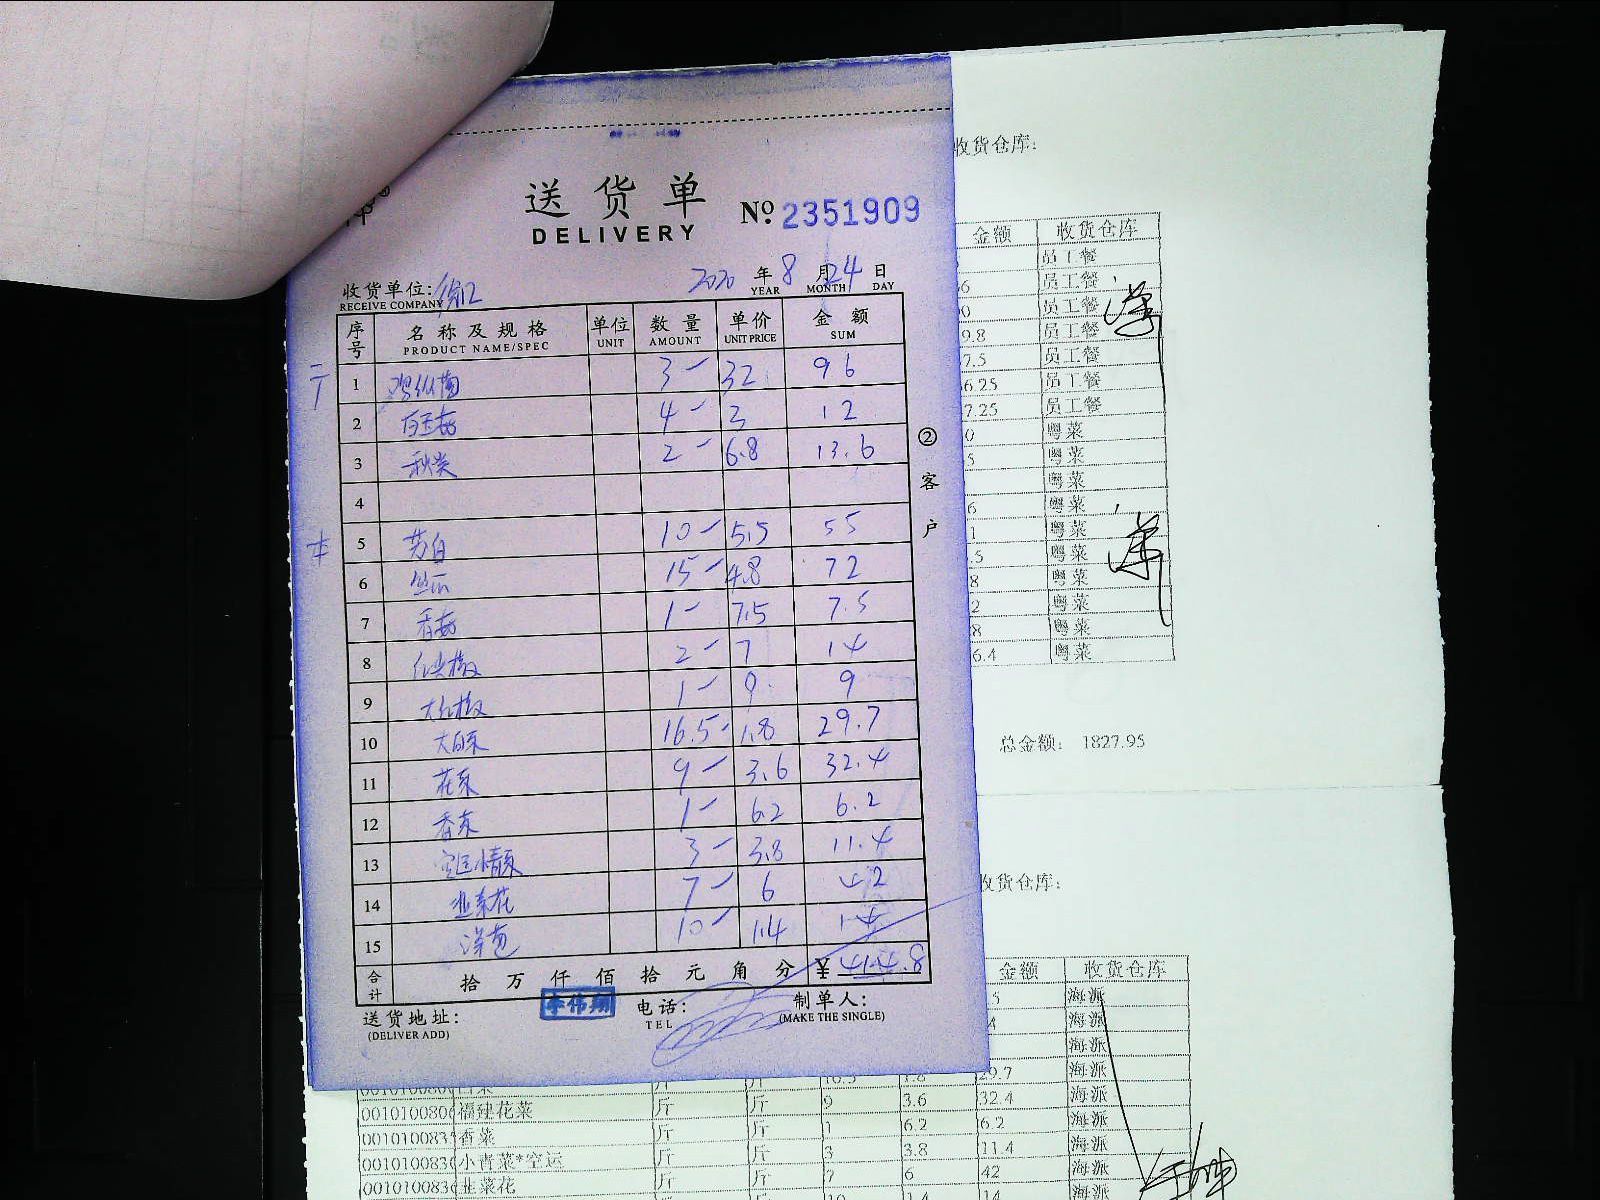 送货单
DELIVERY
№ 2351909
收货单位:
RECEIVE COMPANY
2020 年 8 月 24 日
YEAR MONTH DAY
序号 名称及规格 单位 数量 单价 金额
PRODUCT NAME/SPEC UNIT AMOUNT UNIT PRICE SUM
1 鸡纵菌 3 32 96
2 白玉菇 4 3 12
3 秋葵 2 6.8 13.6
4
5 茭白 10 5.5 55
6 丝瓜 15 4.8 72
7 香菇 1 7.5 7.5
8 2 7 14
9 大红椒 1 9 9
10 大白菜 16.5 1.8 29.7
11 花菜 9 3.6 32.4
12 香菜 1 6.2 6.2
13 3 3.8 11.4
14 韭菜花 7 6 42
15 洋葱 10 1.4 14
合计 拾 万 仟 佰 拾 元 角 分 ¥ 414.8
送货地址:
(DELIVER ADD)
李伟翔
电话:
TEL
制单人:
(MAKE THE SINGLE)
②客户
收货仓库:
金额 收货仓库
员工餐
6 员工餐
0 员工餐
9.8 员工餐
7.5 员工餐
6.25 员工餐
7.25 员工餐
0 粤菜
5 粤菜
粤菜
6 粤菜
1 粤菜
.5 粤菜
8 粤菜
2 粤菜
8 粤菜
6.4 粤菜
总金额: 1827.95
收货仓库:
金额 收货仓库
.5 海派
4 海派
海派
16.5 1.8 29.7 海派
001010080 福建花菜 斤 斤 9 3.6 32.4 海派
001010083 香菜 斤 斤 1 6.2 6.2 海派
001010083 小青菜*空运 斤 斤 3 3.8 11.4 海派
001010083 韭菜花 斤 斤 7 6 42 海派
10 1.4 14 海派